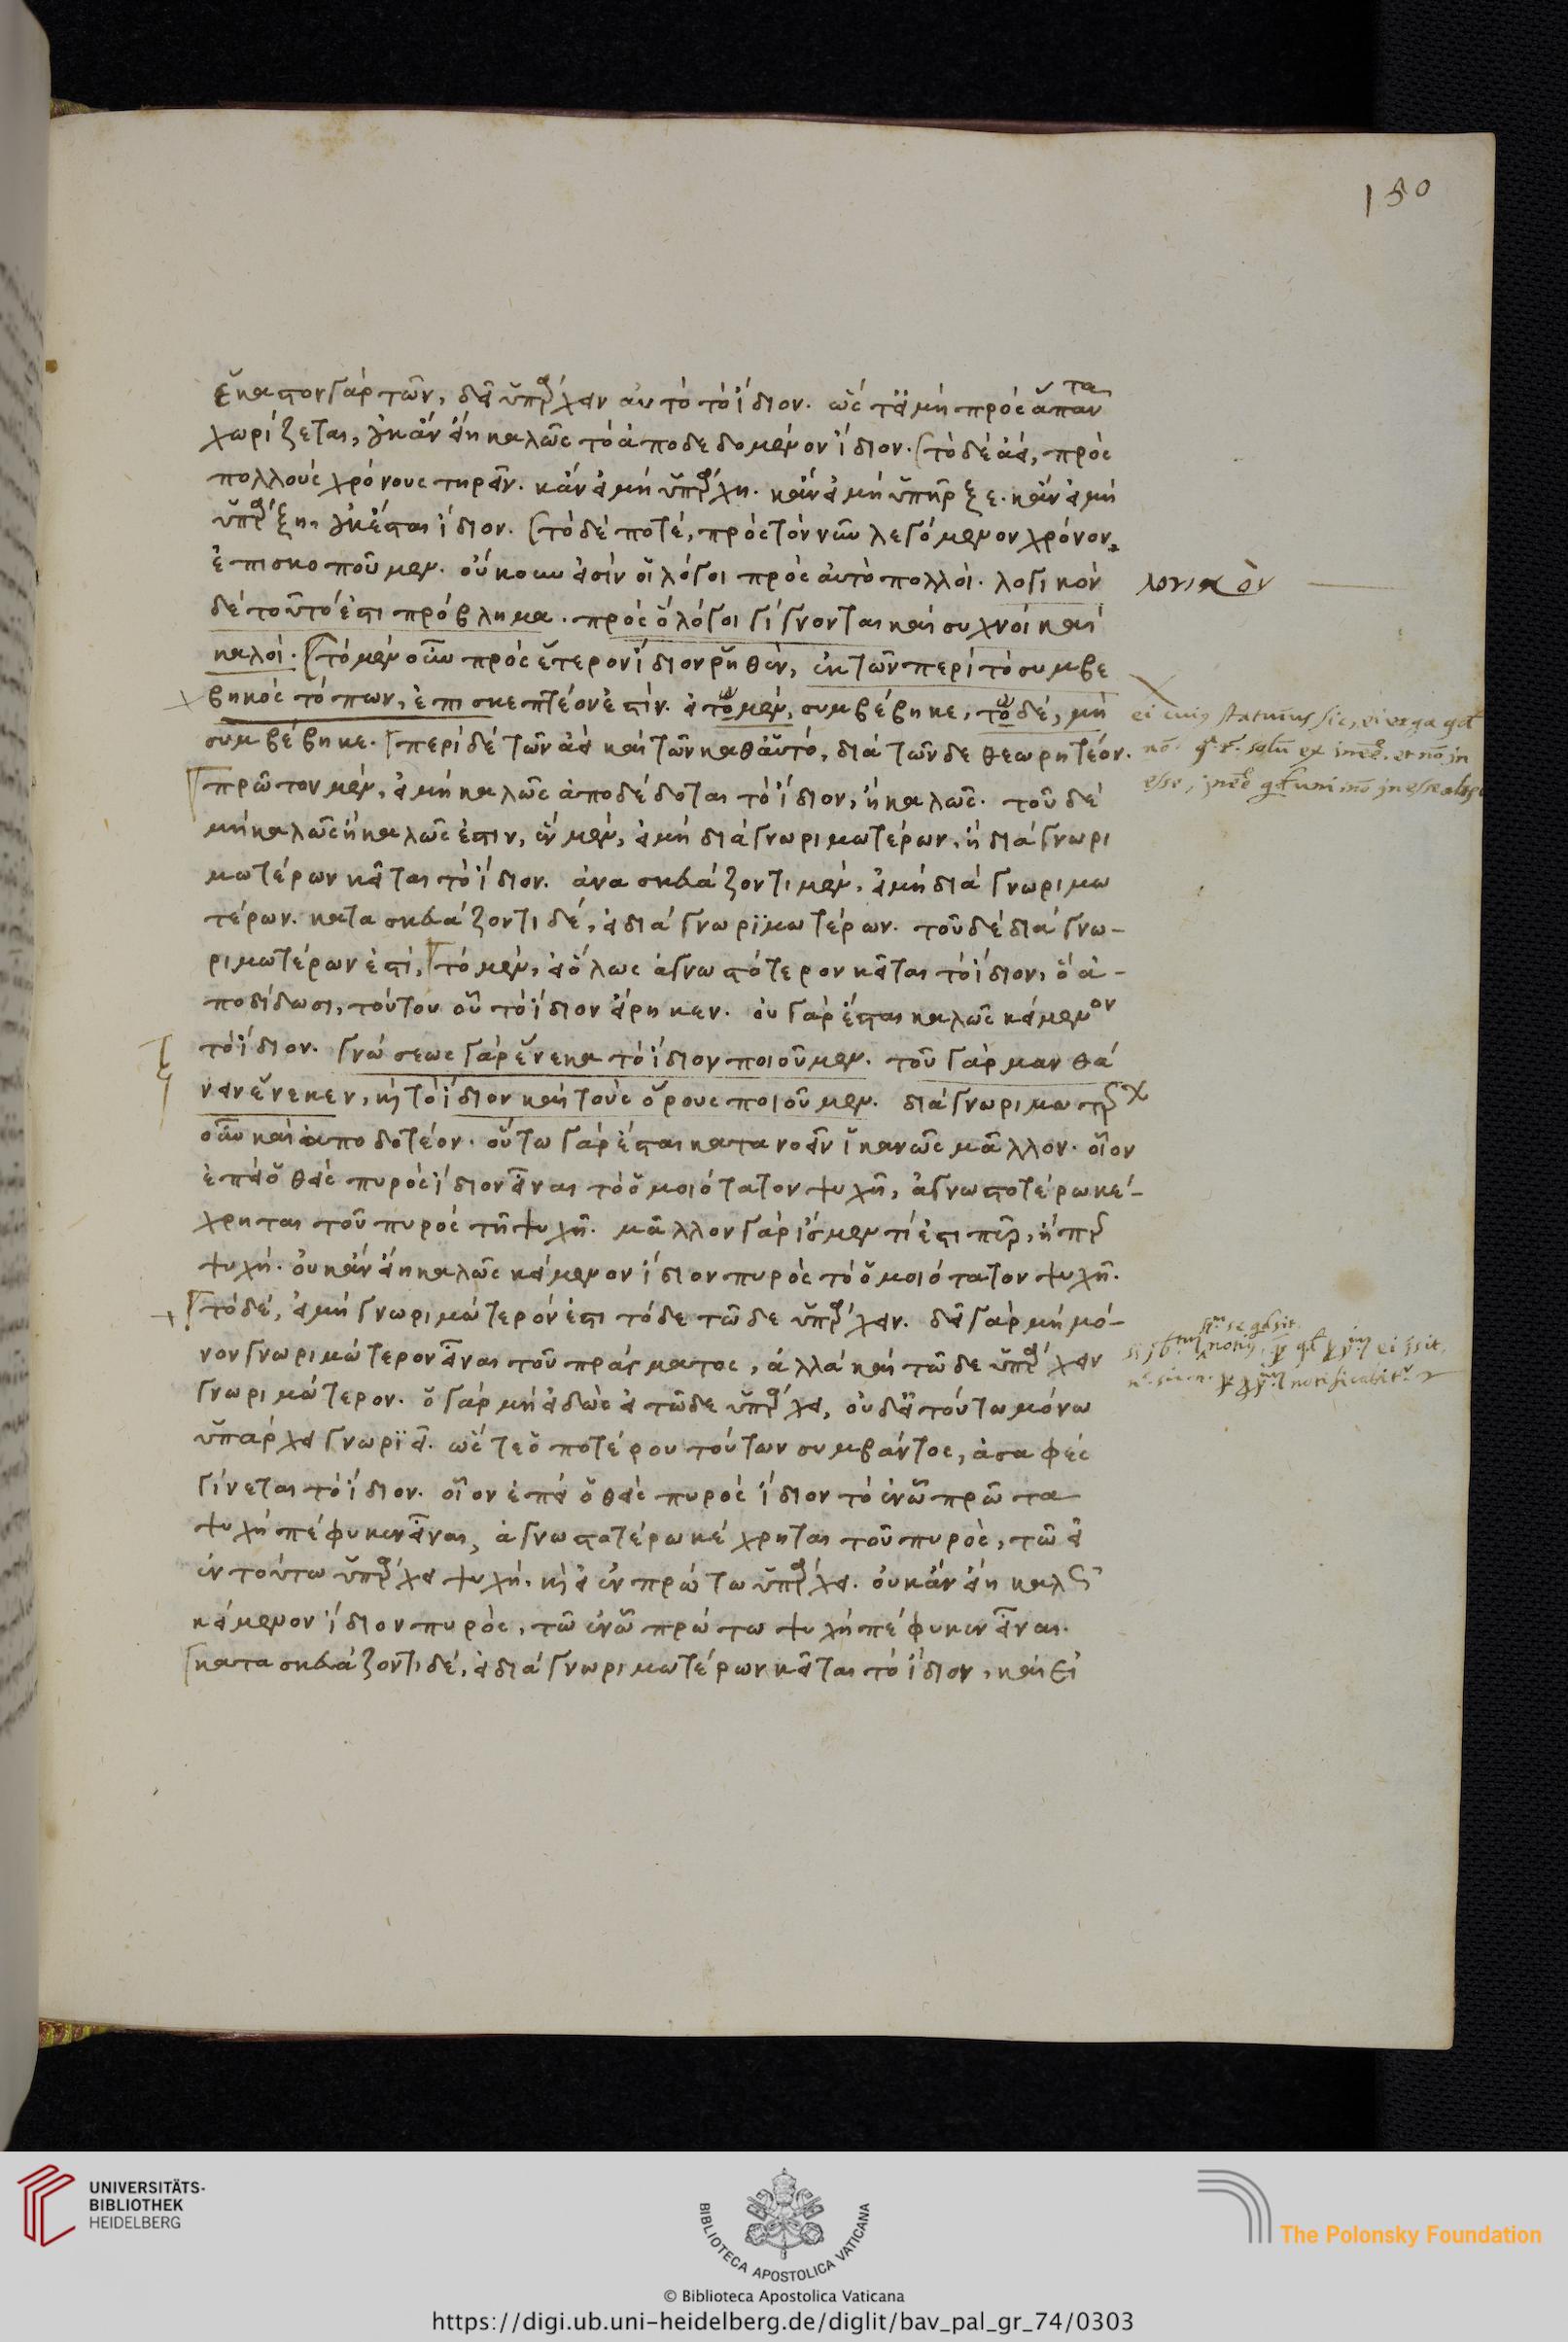 150
ἕκαστον γὰρ τῶν, δεῖ ὑπάρχειν αὐτὸ τὸ ἴδιον. ὥστ' εἰ μὴ πρὸς ἅπαντα
χωρίζεται, οὐκ ἂν εἴη καλῶς τὸ ἀποδεδομένον ἴδιον. τὸ δὲ ἀεί, πρὸς
πολλοὺς χρόνους τηρεῖν. κἂν εἰ μὴ ὑπάρχη. κἂν εἰ μὴ ὑπῆρξε. κἂν εἰ μὴ
ὑπάρξη, οὐκ ἔσται ἴδιον. τὸ δὲ ποτέ, πρὸς τὸν νῦν λεγόμενον χρόνον
ἐπισκοποῦμεν. οὔκουν εἰσὶν οἱ λόγοι πρὸς αὐτὸ πολλοί. λογικὸν
λογικὸν
δὲ τοῦτό ἐστι πρόβλημα. πρὸς ὃ λόγοι γίγνονται καὶ συχνοὶ καὶ
καλοί. τὸ μὲν οὖν πρὸς ἕτερον ἴδιον ῥηθέν, ἐκ τῶν περὶ τὸ συμβε
βηκὸς τόπων, ἐπισκεπτέον ἐστίν. εἰ τῶ μέν, συμβέβηκε, τῶ δέ, μὴ
συμβέβηκε. περὶ δὲ τῶν ἀεὶ καὶ τῶν καθ' αὑτό, διὰ τῶνδε θεωρητέον.
πρῶτον μέν, εἰ μὴ καλῶς ἀποδέδοται τὸ ἴδιον, ἢ καλῶς. τοῦ δὲ
μὴ καλῶς ἢ καλῶς ἐστιν, ἓν μέν, εἰ μὴ διὰ γνωριμωτέρων, ἢ διὰ γνωρι
μωτέρων κεῖται τὸ ἴδιον. ἀνασκευάζοντι μέν, εἰ μὴ διὰ γνωριμω
τέρων. κατασκευάζοντι δέ, εἰ διὰ γνωρϊμωτέρων. τοῦ δὲ διὰ γνω-
ριμωτέρων ἐστί, τὸ μέν, εἰ ὅλως ἀγνωστότερον κεῖται τὸ ἴδιον, ὃ ἀ-
ποδίδωσι, τούτου οὗ τὸ ἴδιον εἴρηκεν. οὐ γὰρ ἔσται καλῶς κείμενον
τὸ ἴδιον. γνώσεως γὰρ ἕνεκα τὸ ἴδιον ποιοῦμεν. τοῦ γὰρ μανθά
νειν ἕνεκεν, καὶ τὸ ἴδιον καὶ τοὺς ὅρους ποιοῦμεν. διὰ γνωριμωτέρων
οὖν καὶ ἀποδοτέον. οὕτω γὰρ ἔσται κατανοεῖν ἱκανῶς μᾶλλον. οἷον
ἐπεὶ ὁ θεὶς πυρὸς ἴδιον εἶναι τὸ ὁμοιότατον ψυχῆ, ἀγνωστοτέρω κέ-
χρηται τοῦ πυρὸς τῆ ψυχῆ. μᾶλλον γὰρ ἴσμεν τί ἐστι πῦρ, ἤπερ
ψυχή. οὐκ ἂν εἴη καλῶς κείμενον ἴδιον πυρὸς τὸ ὁμοιότατον ψυχῆ.
τὸ δέ, εἰ μὴ γνωριμώτερόν ἐστι τόδε τῶδε ὑπάρχειν. δεῖ γὰρ μὴ μό-
νον γνωριμώτερον εἶναι τοῦ πράγματος, ἀλλὰ καὶ τῶδε ὑπάρχειν
γνωριμώτερον. ὁ γὰρ μὴ εἰδὼς εἰ τῶδε ὑπάρχει, οὐδ' εἰ τούτω μόνω
ὑπάρχει γνωρϊεῖ. ὥστε ὁποτέρου τούτων συμβάντος, ἀσαφὲς
γίνεται τὸ ἴδιον. οἷον ἐπεὶ ὁ θεὶς πυρὸς ἴδιον τὸ ἐν ὧ πρώτω
ψυχὴ πέφυκεν εἶναι, ἀγνωστοτέρω κέχρηται τοῦ πυρὸς, τῶ εἰ
ἐν τούτω ὑπάρχει ψυχή. καὶ εἰ ἐν πρώτω ὑπάρχει. οὐκ ἂν εἴη καλῶς
κείμενον ἴδιον πυρὸς, τῶ ἐν ὧ πρώτω ψυχὴ πέφυκεν εἶναι.
κατασκευάζοντι δέ, εἰ διὰ γνωριμωτέρων κεῖται τὸ ἴδιον, καὶ εἰ
UNIVERSITÄTS-
BIBLIOTHEK
HEIDELBERG
BIBLIOTECA APOSTOLICA VATICANA
The Polonsky Foundation
© Biblioteca Apostolica Vaticana
https://digi.ub.uni-heidelberg.de/diglit/bav_pal_gr_74/0303